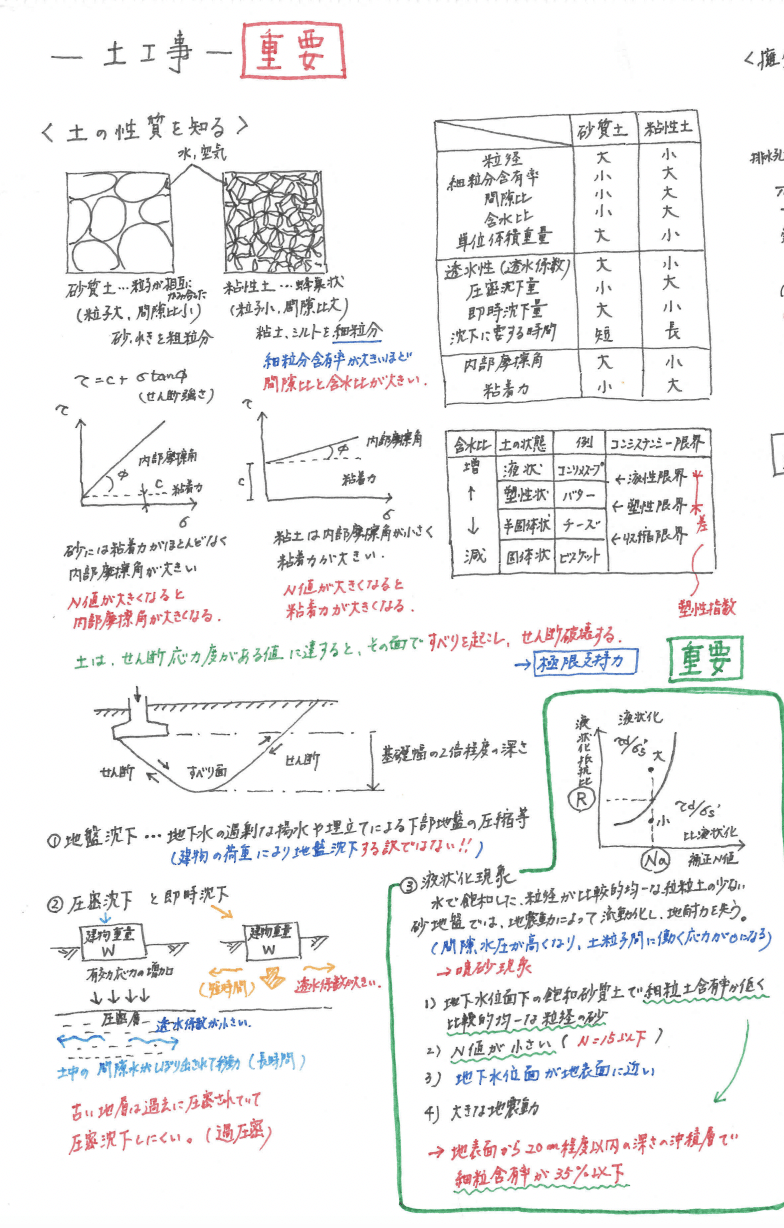 ― 土工事 ― 重要
<土の性質を知る>
水,空気
砂質土…粒子が相互に
かみ合った
(粒子大,間隙比小)
砂,れきを粗粒分
粘性土…蜂巣状
(粒子小,間隙比大)
粘土,シルトを細粒分
細粒分含有率が大きいほど
間隙比と含水比が大きい.
τ=c+σtanφ
(せん断強さ)
τ
内部摩擦角
φ
c
粘着力
σ
砂には粘着力がほとんどなく
内部摩擦角が大きい
N値が大きくなると
内部摩擦角が大きくなる.
τ
内部摩擦角
φ
c
粘着力
σ
粘土は内部摩擦角が小さく
粘着力が大きい.
N値が大きくなると
粘着力が大きくなる.
砂質土 粘性土
粒経 大 小
細粒分含有率 小 大
間隙比 小 大
含水比 小 大
単位体積重量 大 小
透水性(透水係数) 大 小
圧密沈下量 小 大
即時沈下量 大 小
沈下に要する時間 短 長
内部摩擦角 大 小
粘着力 小 大
含水比 土の状態 例 コンシステンシー限界
増 液状 コーンスープ
←液性限界
↑ 塑性状 バター
←塑性限界
↓ 半固体状 チーズ
←収縮限界
減 固体状 ビスケット
差
塑性指数
土は,せん断応力度がある値に達すると,その面ですべりを起こし,せん断破壊する.
→極限支持力
重要
せん断
すべり面
せん断
基礎幅の2倍程度の深さ
①地盤沈下…地下水の過剰な揚水や埋立てによる下部地盤の圧縮等
(建物の荷重により地盤沈下する訳ではない!!)
②圧密沈下と即時沈下
建物重量
W
有効応力の増加
圧密層
透水係数が小さい.
土中の間隙水がしぼり出されて移動(長時間)
建物重量
W
(短時間)
透水係数が大きい.
古い地層は過去に圧密されていて
圧密沈下しにくい。(過圧密)
液状化抵抗比
R
液状化
τd/σz'
大
τd/σz'
小
比液状化
Na
補正N値
③液状化現象
水で飽和した,粒経が比較的均一な粒粒土の少ない
砂地盤では,地震動によって流動化し,地耐力を失う。
(間隙水圧が高くなり,土粒子間に働く応力が0になる)
→噴砂現象
1)地下水位面下の飽和砂質土で細粒土含有率が低く
比較的均一な粒経の砂
2)N値が小さい(N=15以下)
3)地下水位面が地表面に近い
4)大きな地震動
→地表面から20m程度以内の深さの沖積層で
細粒含有率が35%以下
<擁
排水孔